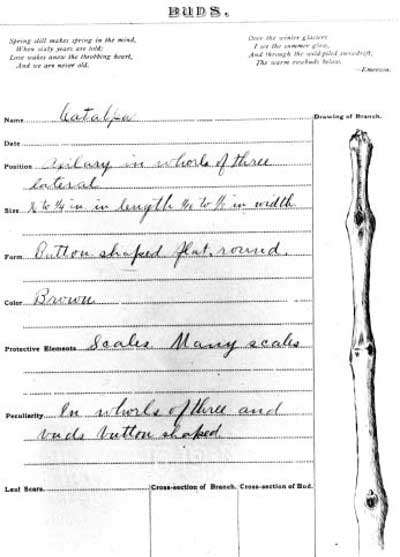 BUDS.
Spring still makes spring in the mind,
When sixty years are told;
Love wakes anew the throbbing heart,
And we are never old.
Over the winter glaciers
I see the summer glow,
And through the wild-piled snowdrift,
The warm rosebuds below.
—Emerson.
Name Catalpa
Drawing of Branch.
Date
Position Axilary in whorls of three
lateral
Size to 1/4 in in length to in width
Form Button shaped flat, round.
Color Brown
Protective Elements Scales Many scales
Peculiarity In whorls of three and
buds button shaped
Leaf Scars. Cross-section of Branch. Cross-section of Bud.